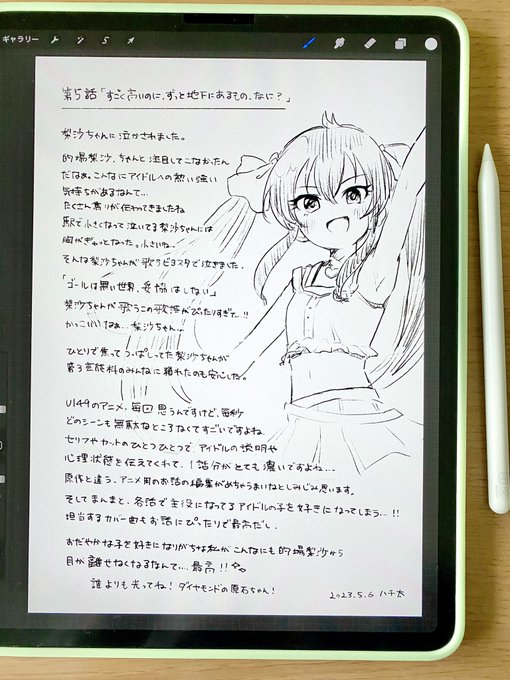 ギャラリー
第5話「すごく高いのに、ずっと地下にあるもの、なに？」
梨沙ちゃんに泣かされました。
的場梨沙ちゃんと注目してこなかったん
だなぁ。こんなにアイドルへの熱い強い
気持ちがあるなんて…
たくさん焦りが伝わってきましたね
駅で小さくなって泣いてる梨沙ちゃんには
胸がぎゅっとなった。小さいね…
そんな梨沙ちゃんが歌うビヨスタで泣きました。
「ゴールは無い世界、妥協はしない」
梨沙ちゃんが歌うこの歌詞がぴったりすぎて…!!
かっこいいなぁ…梨沙ちゃん…
ひとりで焦ってつっぱしってた梨沙ちゃんが
第3芸能科のみんなに頼れたのも安心した。
U149のアニメ、毎回思うんですけど、毎秒
どのシーンも無駄なところなくてすごいですよね
セリフやカットのひとつひとつで、アイドルの説明や
心理状態を伝えてくれて、1話分がとても濃いですよね…
原作と違う、アニメ用のお話の編集がめちゃうまいなとしみじみ思います。
そしてまんまと、各話で主役になってるアイドルの子を好きになってしまう…!!
担当するカバー曲もお話にぴったりで最高だし、
おだやかな子を好きになりがちな私が こんなにも的場梨沙から
目が離せなくなるなんて…最高!!
誰よりも光ってね! ダイヤモンドの原石ちゃん!
2023.5.6 ハチ太